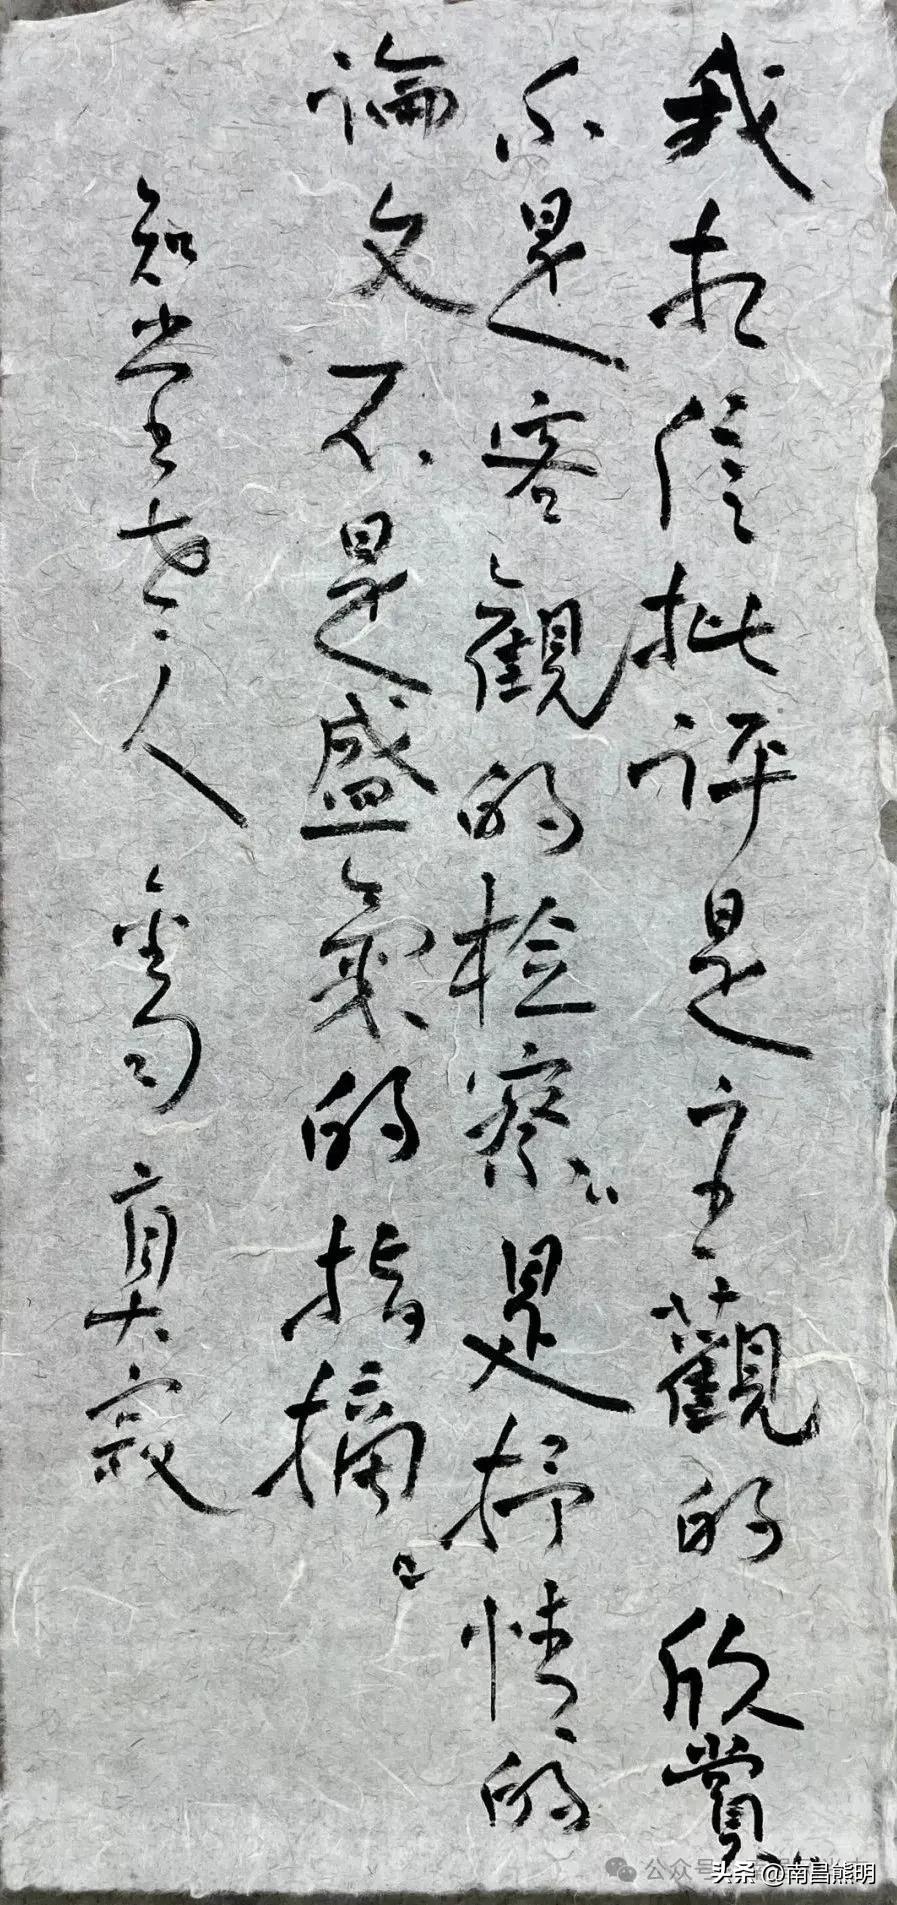 我相信批評是主觀的欣賞
不是客觀的檢察,是抒情的
論文不是盛氣的指摘。
知堂老人金句 真大寂
公众号
头条 @南昌熊明